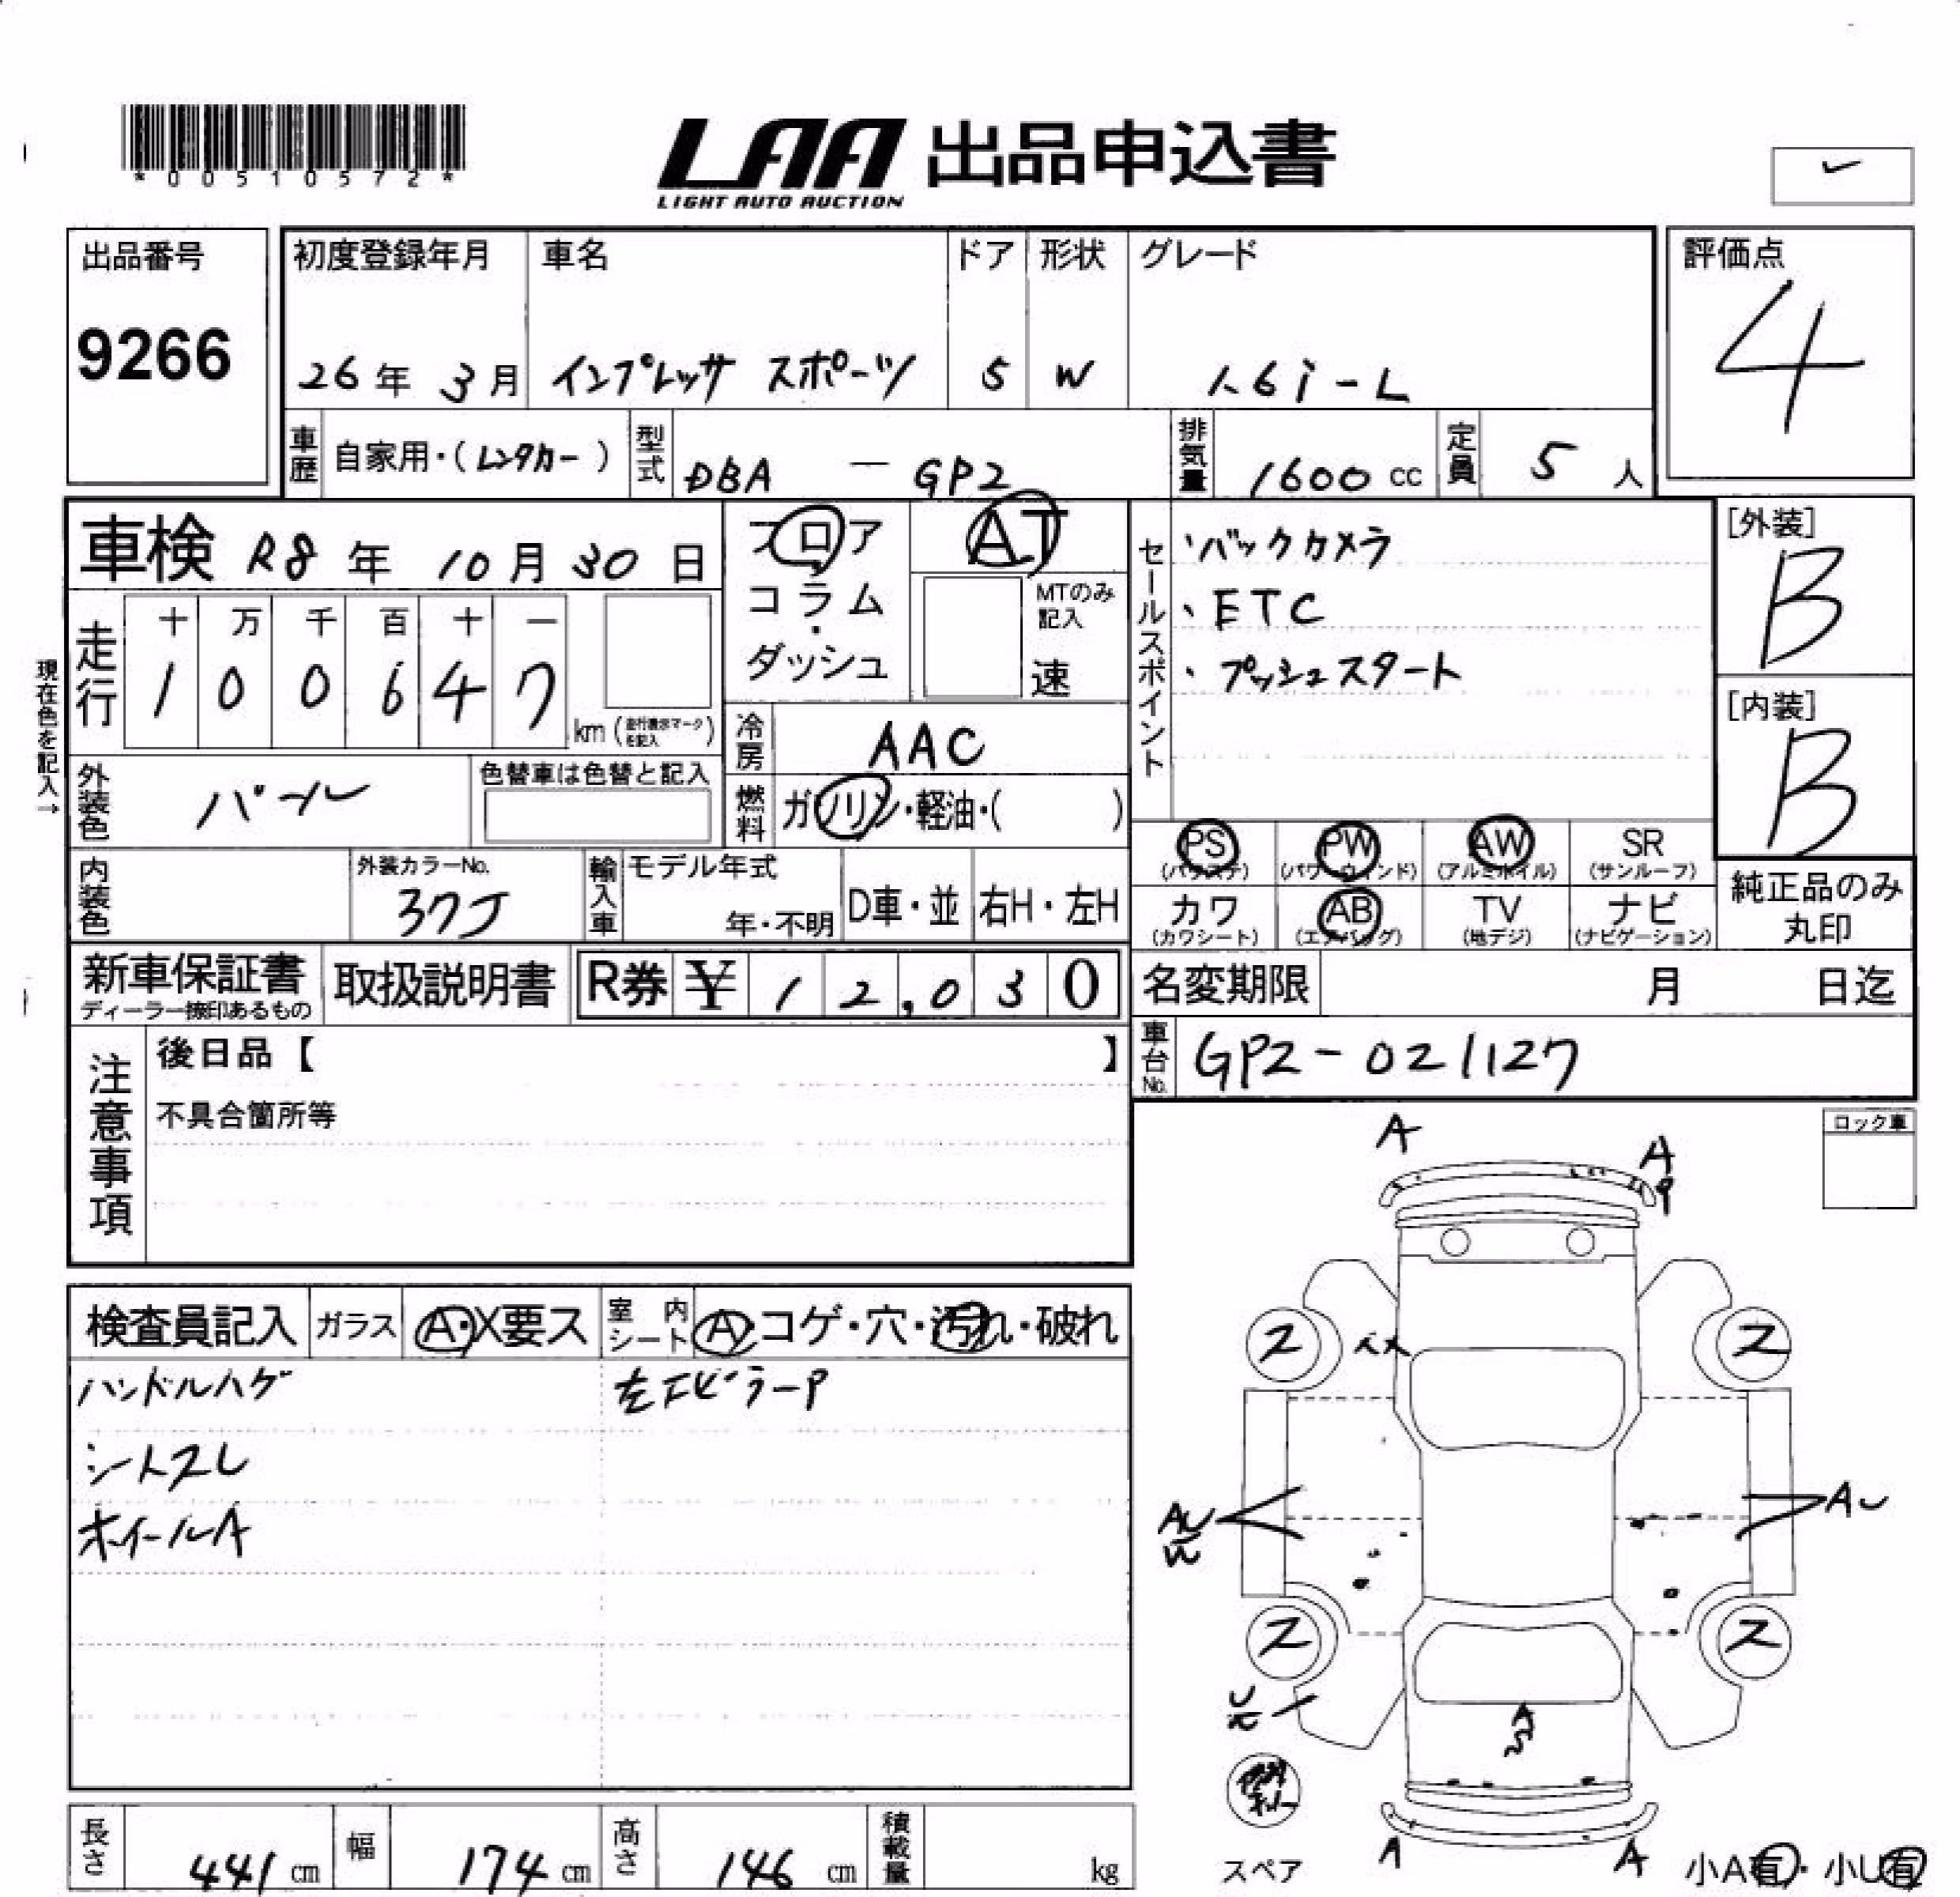 *00510572*
LAA 出品申込書
LIGHT AUTO AUCTION
出品番号
9266
初度登録年月
26年 3月
車名
インプレッサ スポーツ
ドア
5
形状
W
グレード
1.6i-L
評価点
4
車歴 自家用・(レンタカー)
型式 DBA - GP2
排気量 1600 cc
定員 5 人
車検 R8年 10月 30日
フロア
コラム
・
ダッシュ
AT
MTのみ
記入
速
セールスポイント
・バックカメラ
・ETC
・プッシュスタート
[外装]
B
[内装]
B
現在色を記入→
走行
十 万 千 百 十 一
1 0 0 6 4 7
km (走行表示マークを記入)
冷房 AAC
外装色 パール
色替車は色替と記入
燃料 ガソリン・軽油・( )
内装色
外装カラーNo.
37J
輸入車
モデル年式
年・不明
D車・並
右H・左H
PS (パワステ)
PW (パワーウィンド)
AW (アルミホイル)
SR (サンルーフ)
カワ (カワシート)
AB (エアバッグ)
TV (地デジ)
ナビ (ナビゲーション)
純正品のみ
丸印
新車保証書
ディーラー捺印あるもの
取扱説明書
R券 ¥ 12,030
名変期限 月 日迄
車台No. GP2-021127
注意事項
後日品【 】
不具合箇所等
ロック車
A
A
P
検査員記入
ガラス A・X要ス
室内シート A・コゲ・穴・汚れ・破れ
ハンドルハゲ
シートスレ
ホイールA
左エピラーP
ス
ス
AU
AU
ス
ス
U
A
S
スペア
A
A
小A有・小U有
長さ 441 cm
幅 174 cm
高さ 146 cm
積載量 kg